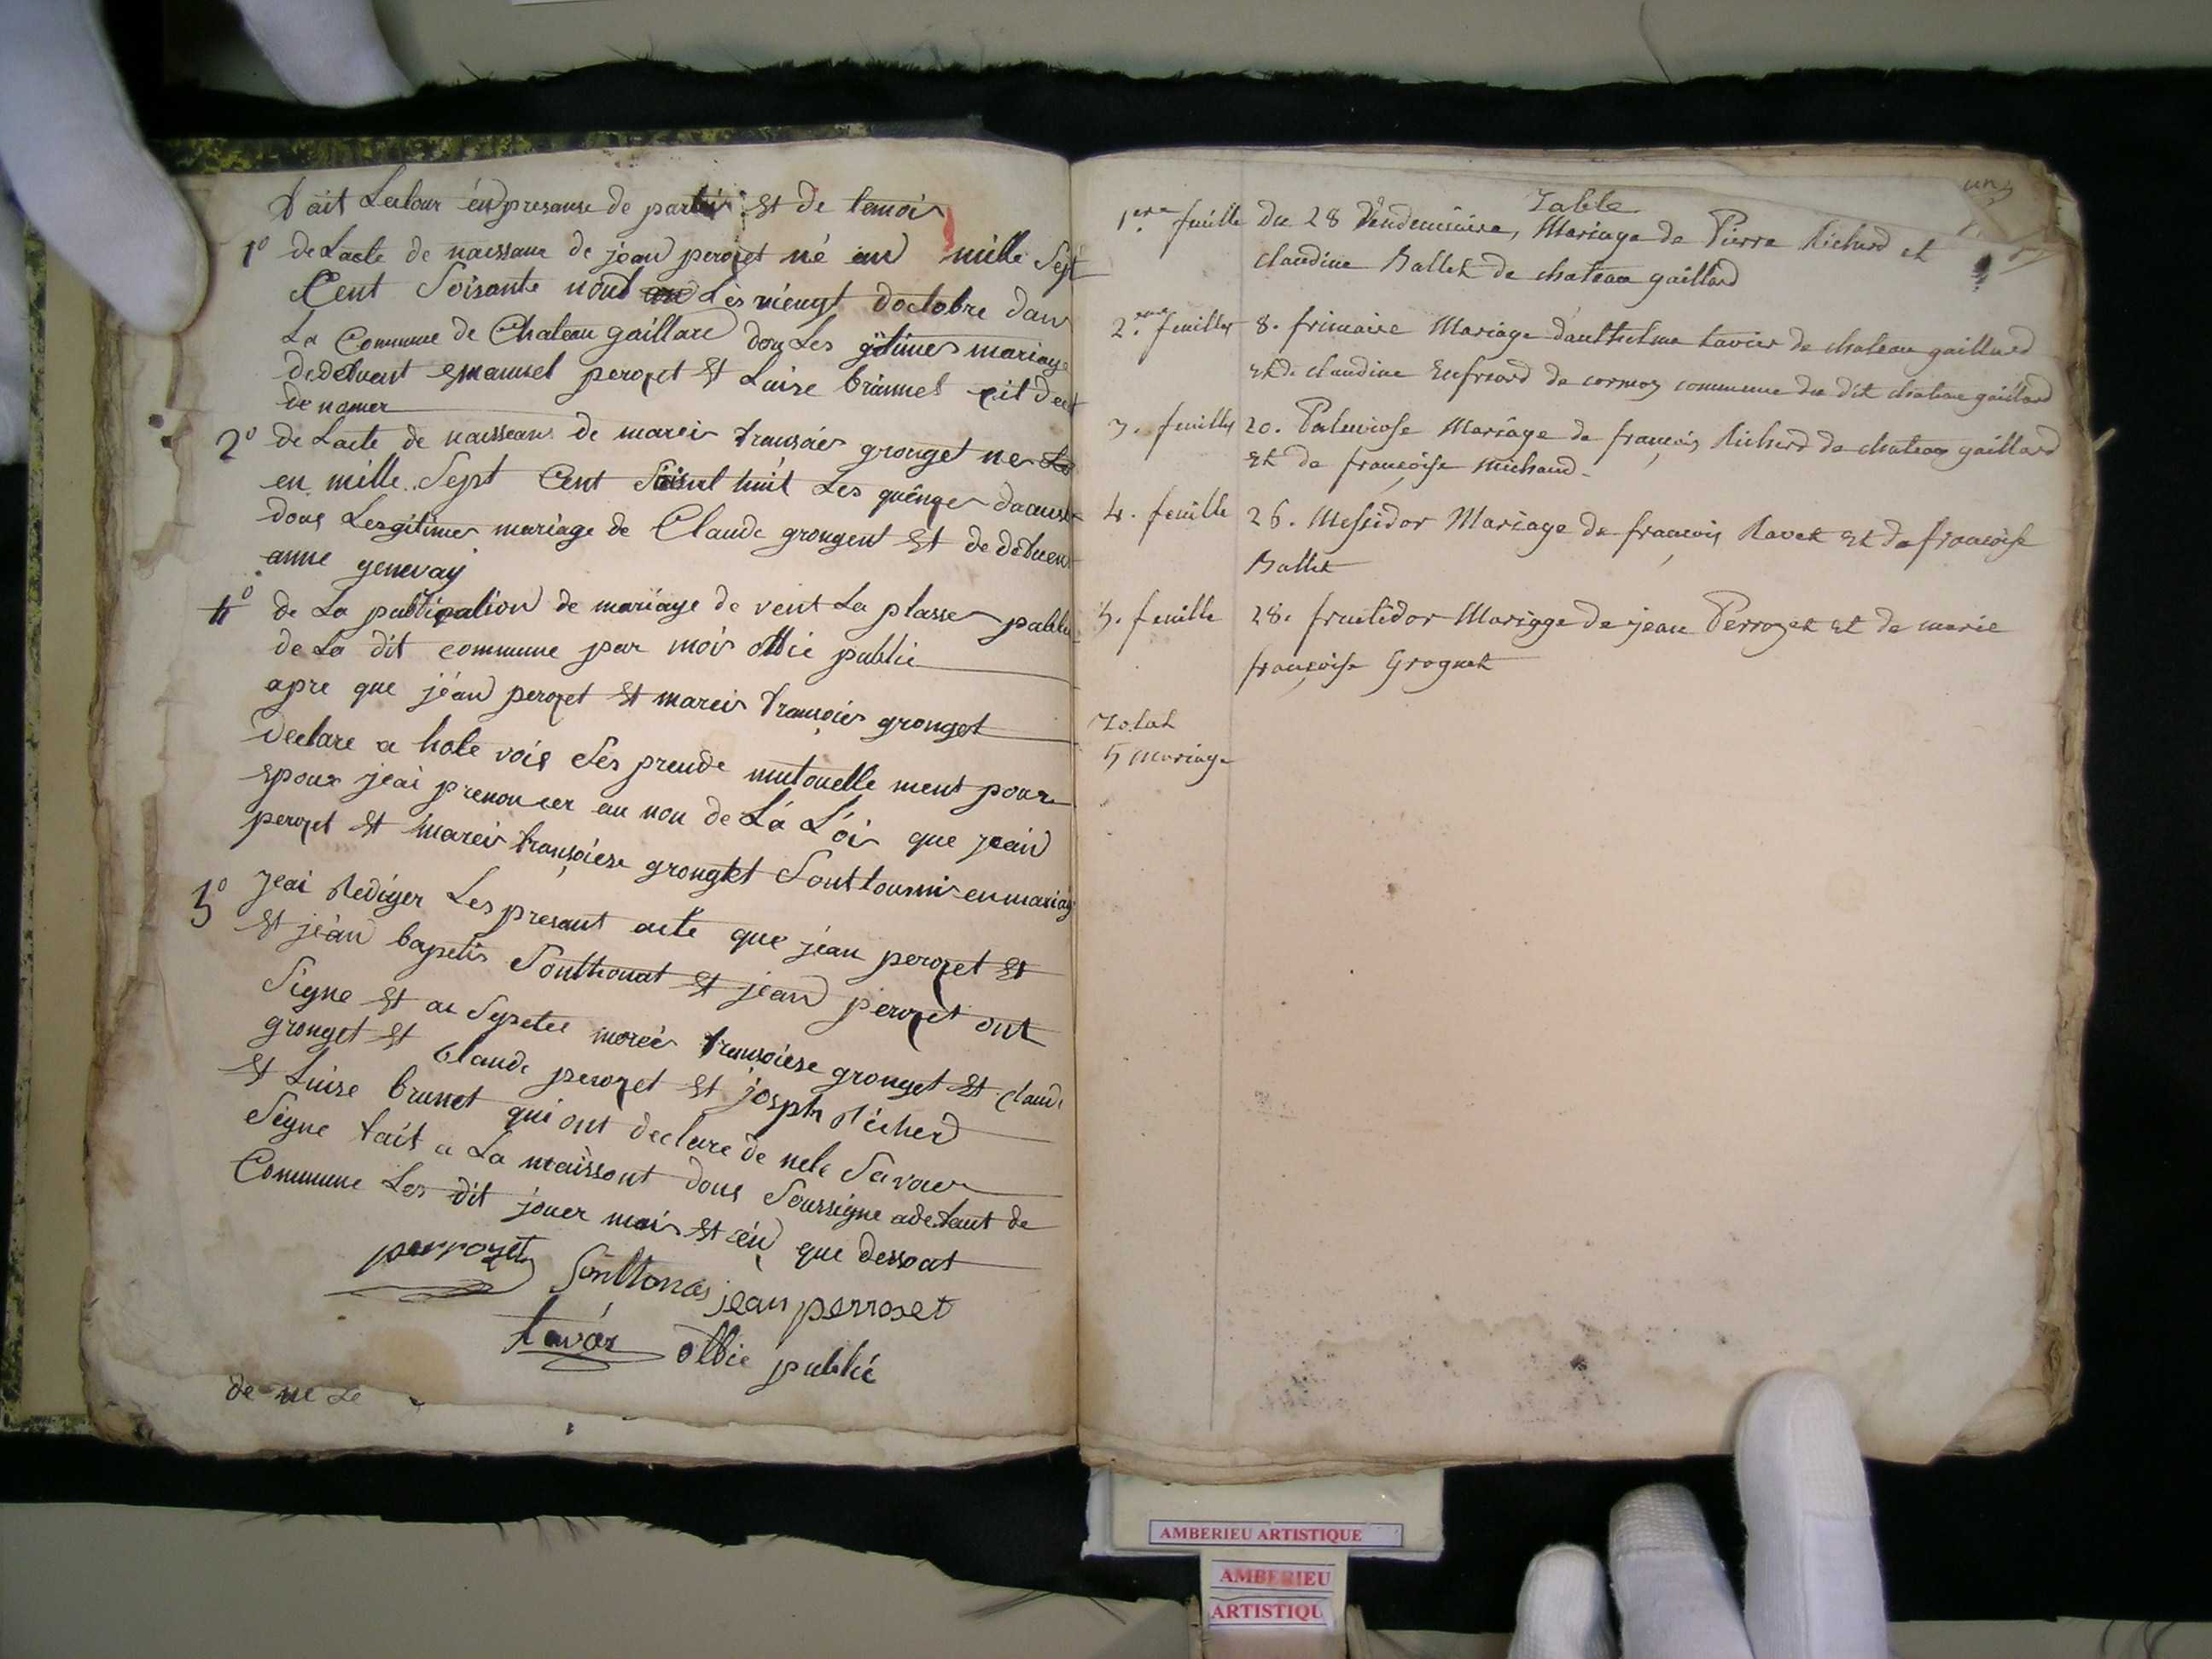 fait Lectour en presanse de partis Et de temoin
1º de Lacte de naissanse de jean perozet né an mille Sept
Cent Soisante nouf Les viengt doctobre dans
La Commune de Chateau gaillard dou Les gitimes mariage
dedefuent emanuel perozet Et Luise brunnet
de nomer
2º de Lacte de naissans de mareis fransoies gronget ne
en mille Sept Cent huit Les quinge
dous Lesgitimes mariage de Claude gronget Et de defuent
anne genevay
4º de La publication de mariage de vent La plasse public
de La dit commune par moi offic public
apre que jean perozet Et mareis fransoies gronget
declare a hote vois Ses prende mutouelle ment pour
epoux jeai prenoncer au non de La Loi que jean
perozet Et mareis fransoiese gronget Sont tounis en mariage
5º jeai Rediger Les presant acte que jean perozet Et
Et jean bapetis Sonthonat Et jean perozet ont
Signe Et mareis fransoiese gronget Et Claude
gronget Et Claude perozet Et joseph Richerd
Et Luise brunet qui ont declare de nele Savoier
Signe fait a La maissont dous Soussigne de
Commune Les dit jouer mois Et en que dessoat
perrozet Sonthonas jean perroset
tavier offic public
de ne Le
un
Table
1ere feuille du 28 Vendemiaire, Mariage de Pierre Richerd et
claudine Ballet de chateau gaillard
2.eme feuilles 8. frimaire Mariage danthelme tavier de chateau gaillard
Et de claudine de cormoz commune du dit chateau gaillard
3. feuilles 20. Pluviose Mariage de françois Richerd de chateau gaillard
Et de françoise michaud
4. feuille 26. Messidor Mariage de françois Ravet Et de françoise
Ballet
5. feuille 28. fructidor Mariage de jean Perrozet Et de marie
françoise Grognet
Total
5 mariage
AMBERIEU ARTISTIQUE
AMBERIEU
ARTISTIQU